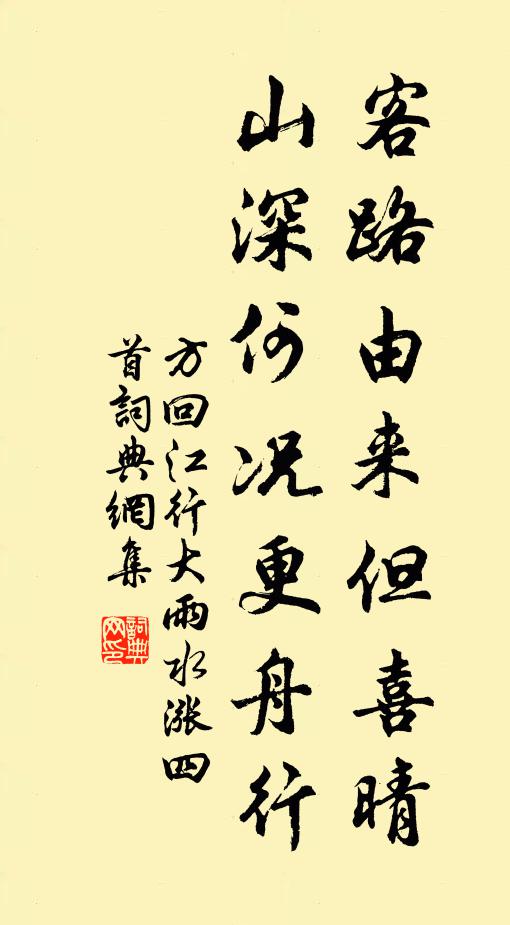 客路由来但喜晴
山深何况更舟行
方回江行大雨水涨四
首詞典網集
詞典网印